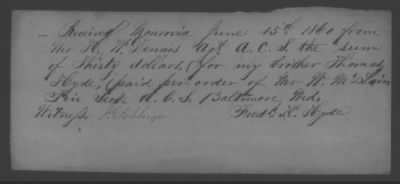 Received Monrovia June 15th 1860 from
Mr H. W. Dennis Agt A.C.S. the sum
of Thirty dollars, (for my brother Thomas
Hyde,) paid per order of Mr W. McLain
Fin Sect A.C.S. Baltimore, Md,
Witness Fredk K. Hyde